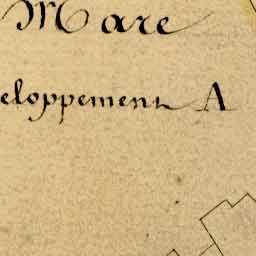 Mare
eloppement A